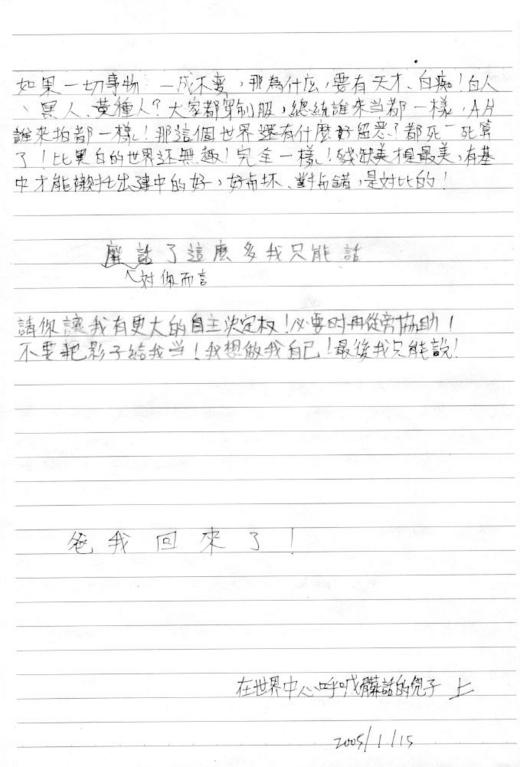 如果一切事物 一成不變,那為什么,要有天才、白痴!白人
、黑人、黃種人?大家都穿制服,總統誰來当都一樣,A片
誰來拍都一樣!那這個世界還有什麼好留恋?都死一死算
了!比黑白的世界还無趣!完全一樣!殘缺美才是最美,有基
中才能襯託出建中的好,好而坏、對而錯,是対比的!
廢話了這麼多我只能話
対你而言
請你讓我有更大的自主決定权!必要时再從旁協助!
不要把影子給我当!我想做我自己!最後我只能說!
爸我回來了!
在世界中心呼喊髒話的兒子 上
2005/1/15